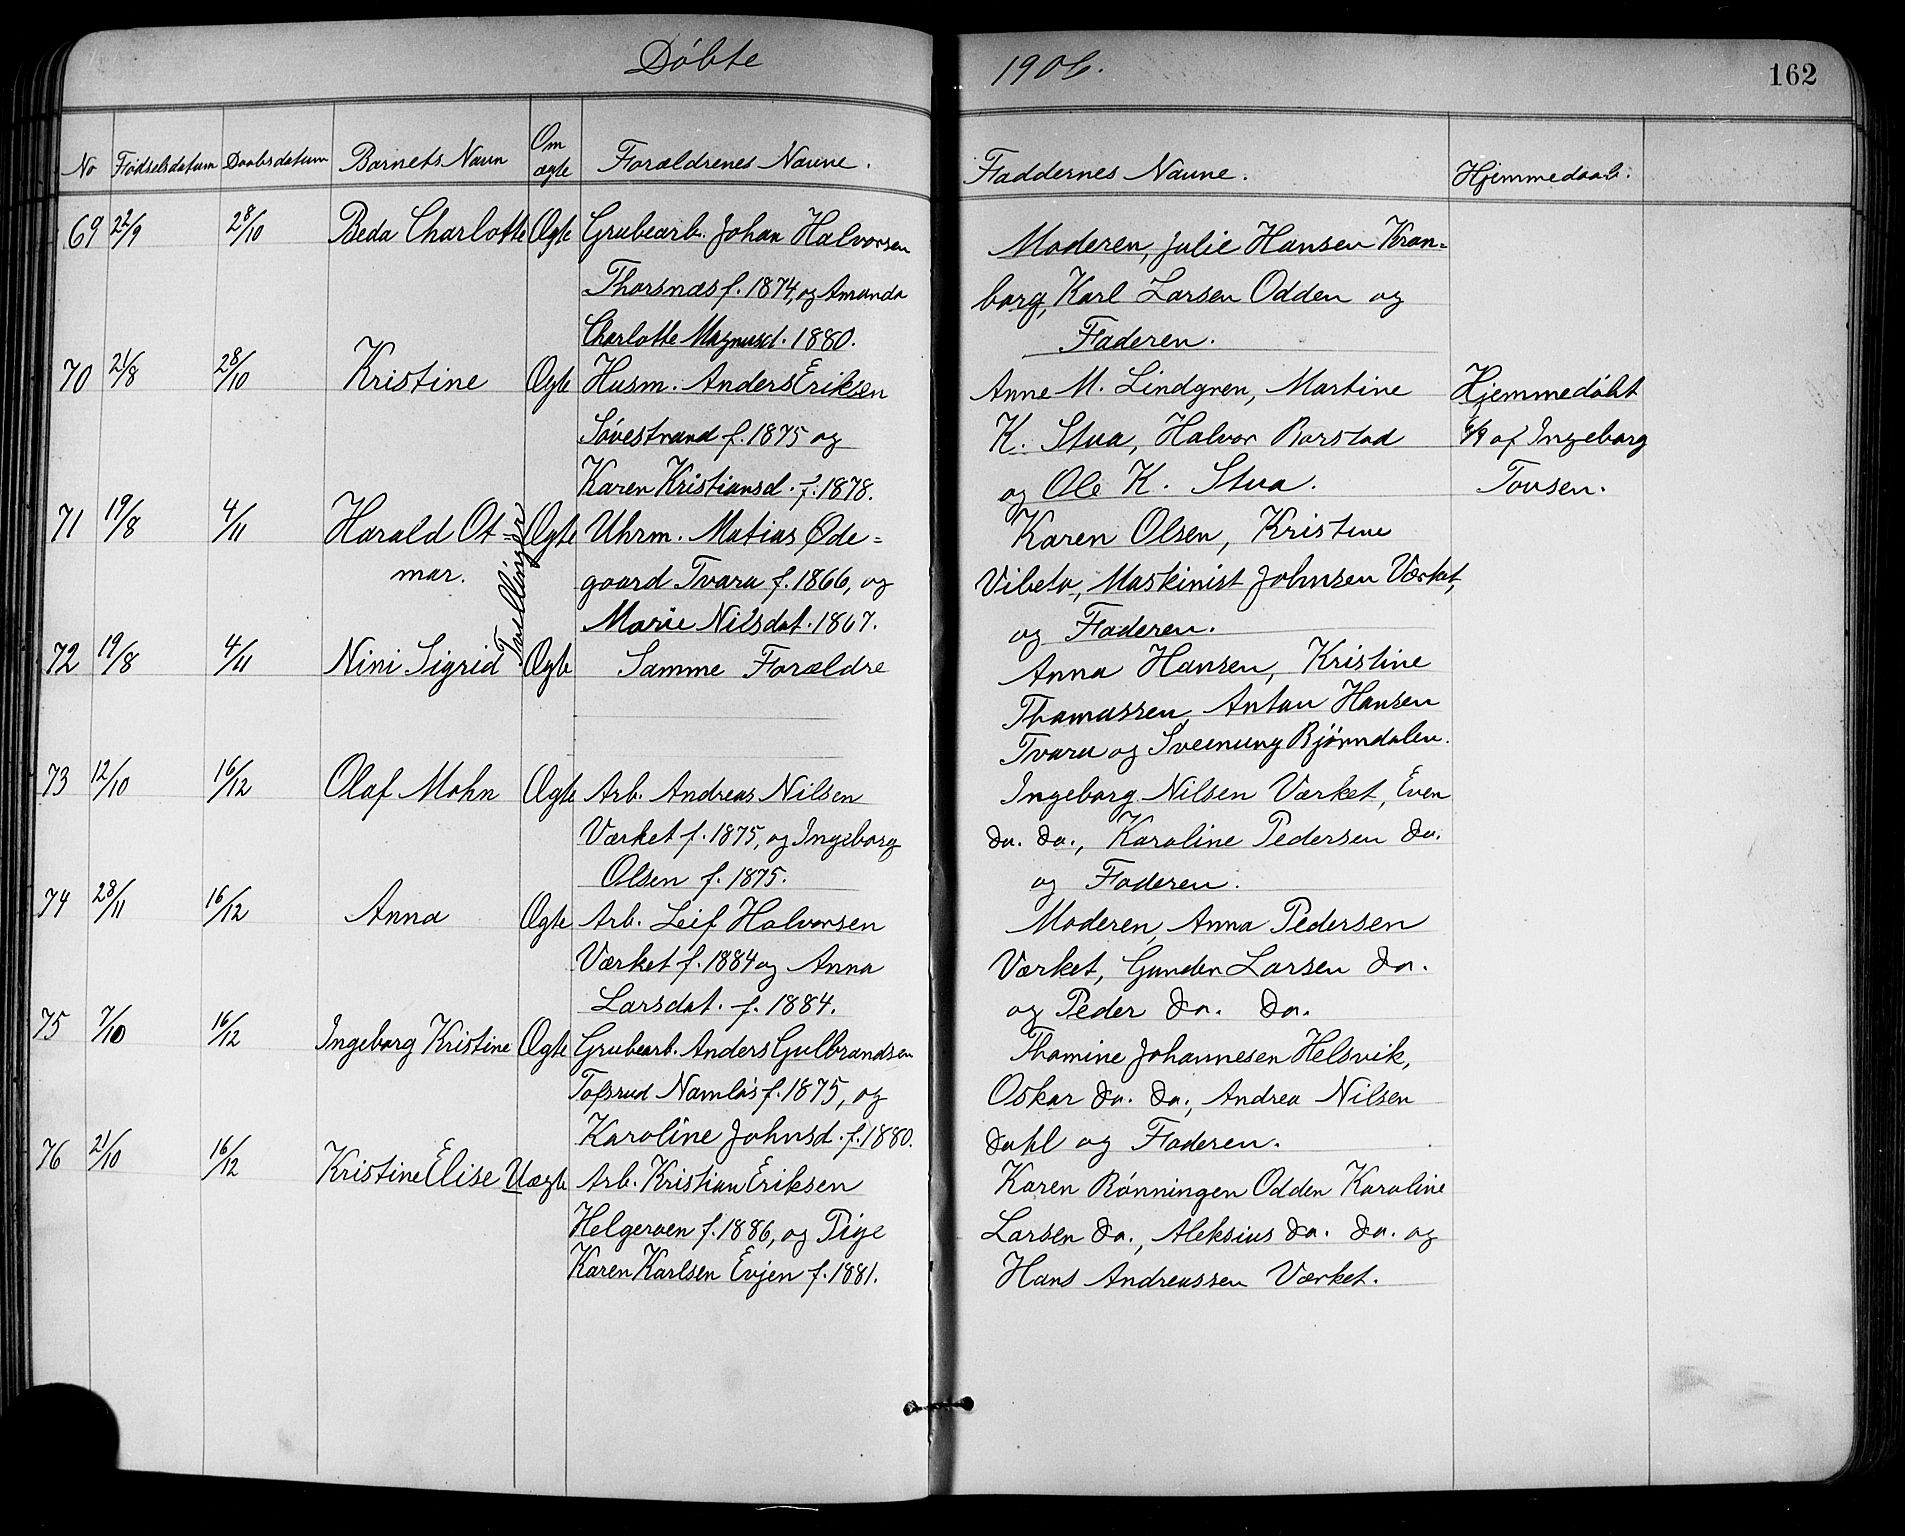 Døbte 1906. 162
No Fødselsdatum Daabsdatum Barnets Navn Om ægte Forældrenes Navne. Faddernes Navne. Hjemmedaab.
69 22/9 28/10 Beda Charlotte Ægte Grubearb. Johan Halvorsen
Thorsnæs f. 1874, og Amanda
Charlotte Magnusd. 1880.
Moderen, Julie Hansen Kron=
borg, Karl Larsen Odden og
Faderen.
70 21/8 28/10 Kristine Ægte Husm. Anders Eriksen
Søvestrand f. 1875 og
Karen Kristiansd. f. 1878.
Anne M. Lindgren, Martine
K. Stua, Halvor Borstad
og Ole K. Stua.
Hjemmedøbt
6/9 af Ingeborg
Tovsen.
71 19/8 4/11 Harald Ot=
mar.
Tvillinger
Ægte Uhrm. Matias Øde=
gaard Tvara f. 1866, og
Marie Nilsdat. 1867.
Karen Olsen, Kristine
Vibeto, Maskinist Johnsen Værket,
og Faderen.
72 19/8 4/11 Nini Sigrid Ægte Samme Forældre
Anna Hansen, Kristine
Thomassen, Anton Hansen
Tvara og Sveinung Bjørndalen.
73 12/10 16/12 Olaf Mohn Ægte Arb. Andreas Nilsen
Værket f. 1875, og Ingeborg
Olsen f. 1875.
Ingeborg Nilsen Værket, Even
do. do., Karoline Pedersen do.
og Faderen.
74 28/11 16/12 Anna Ægte Arb. Leif Halvorsen
Værket f. 1884 og Anna
Larsdat. f. 1884.
Moderen, Anna Pedersen
Værket, Gunder Larsen do.
og Peder do. do.
75 7/10 16/12 Ingeborg Kristine Ægte Grubearb. Anders Gulbrandsen
Tofsrud Namløs f. 1875, og
Karoline Johnsd. f. 1880.
Thomine Johannesen Helsvik,
Oskar do. do., Andrea Nilsen
Dahl og Faderen.
76 21/10 16/12 Kristine Elise Uægte Arb. Kristian Eriksen
Helgeroen f. 1886, og Pige
Karen Karlsen Evjen f. 1881.
Karen Rønningen Odden Karoline
Larsen do., Aleksius do. do. og
Hans Andreassen Værket.